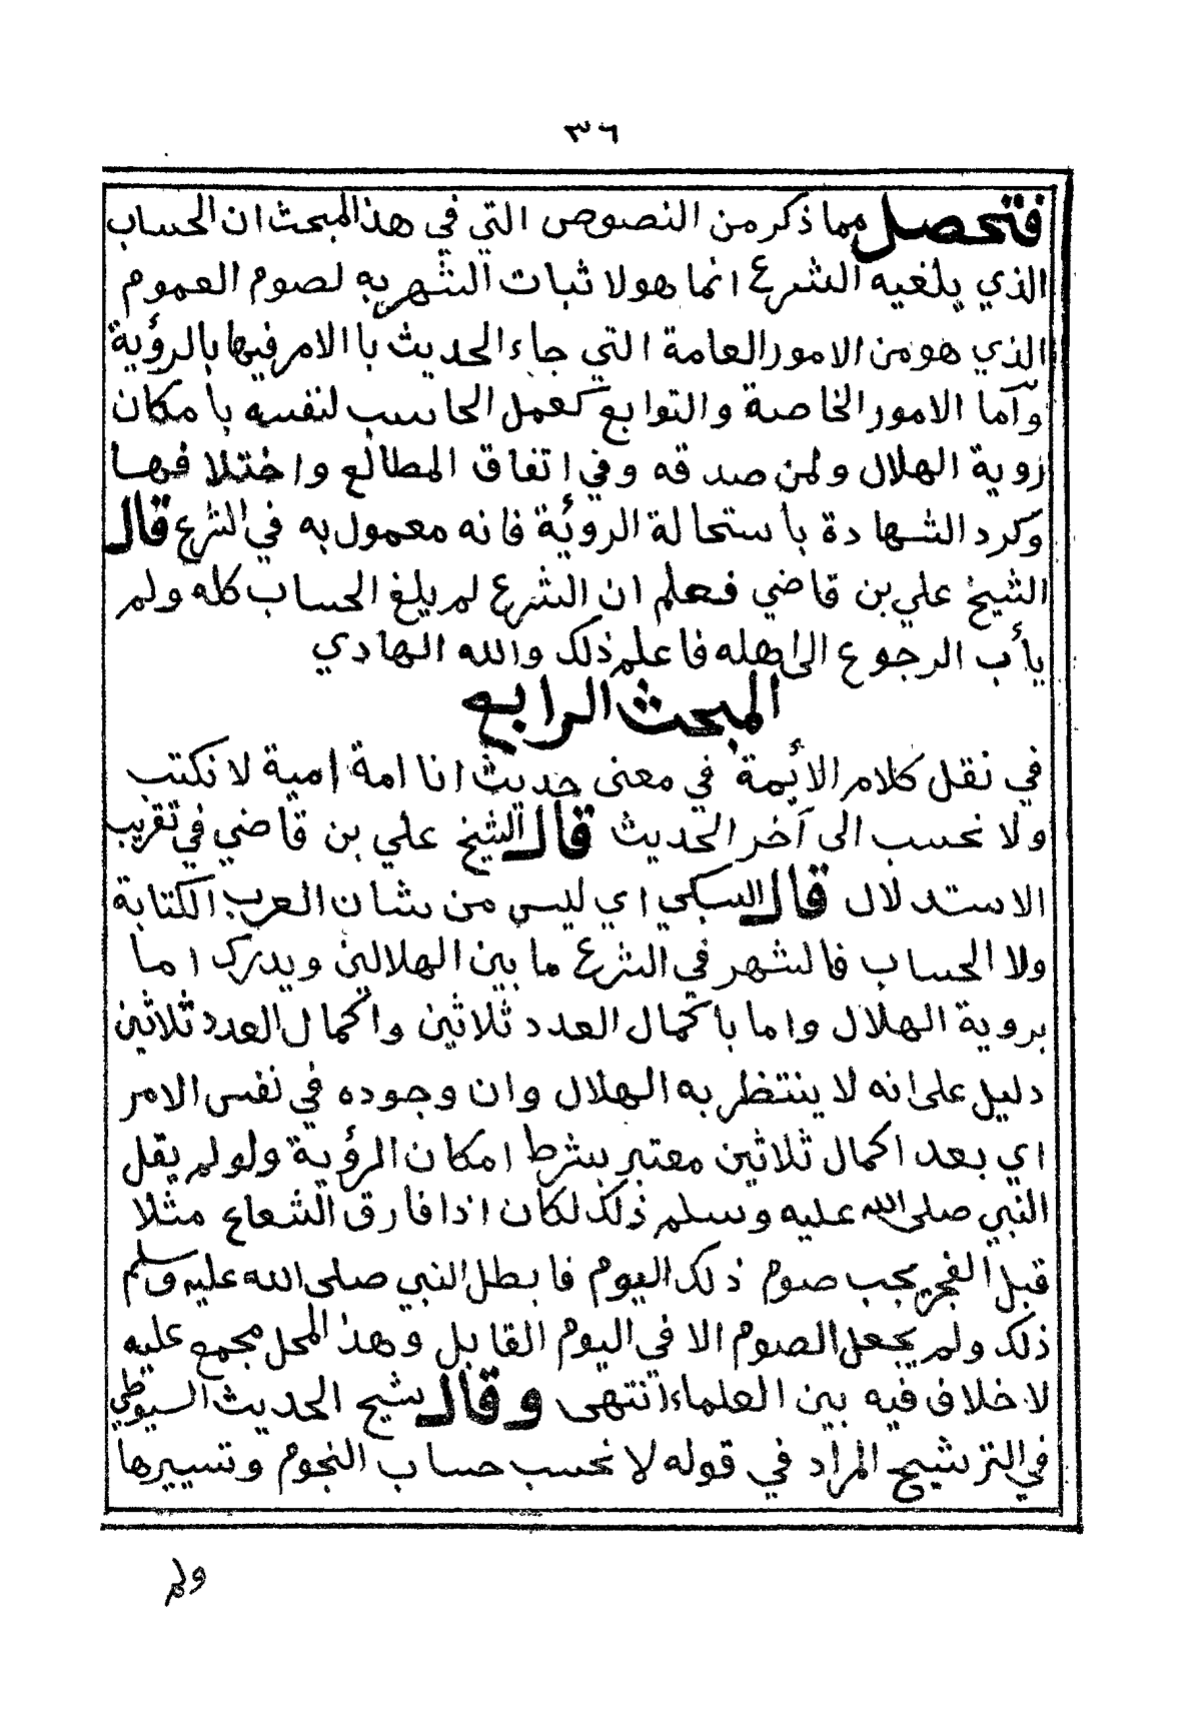 ٣٦
فتحصل مما ذكر من النصوص التي في هذا المبحث ان الحساب
الذي يلغيه الشرع انما هو لا ثبات الشهر به لصوم العموم
الذي هو من الامور العامة التي جاء الحديث با الامر فيها بالرؤية
وأما الامور الخاصة والتوابع كعمل الحاسب لنفسه بأ مكان
روية الهلال ولمن صدقه وفي اتفاق المطالع واختلا فها
وكرد الشهادة بأ ستحالة الروئة فانه معمول به في الشرع قال
الشيخ علي بن قاضي فعلم ان الشرع لم يلغ الحساب كله ولم
يأب الرجوع الى اهله فاعلم ذلك والله الهادي
المبحث الرابع
في نقل كلام الأيمة في معنى حديث انا امة امية لا نكتب
ولا نحسب الى آخر الحديث قال الشيخ علي بن قاضي في تقريب
الاستدلال قال السبكي اي ليس من شان العرب الكتابة
ولا الحساب فالشهر في الشرع ما بين الهلالين ويدرك اما
بروية الهلال واما باكمال العدد ثلاثين واكمال العدد ثلاثين
دليل على انه لا ينتظر به الهلال وان وجوده في نفس الامر
اي بعد اكمال ثلاثين معتبر بشرط امكان الرؤية ولو لم يقل
النبي صلى الله عليه وسلم ذلك لكان اذا فارق الشعاع مثلا
قبل الفجر يجب صوم ذلك اليوم فابطل النبي صلى الله عليه وسلم
ذلك ولم يجعل الصوم الا في اليوم القابل وهذا المحل مجمع عليه
لا خلاف فيه بين العلماء انتهى وقال شيخ الحديث السيوطي
في الترشيح المراد في قوله لا نحسب حساب النجوم وتسييرها
ولم